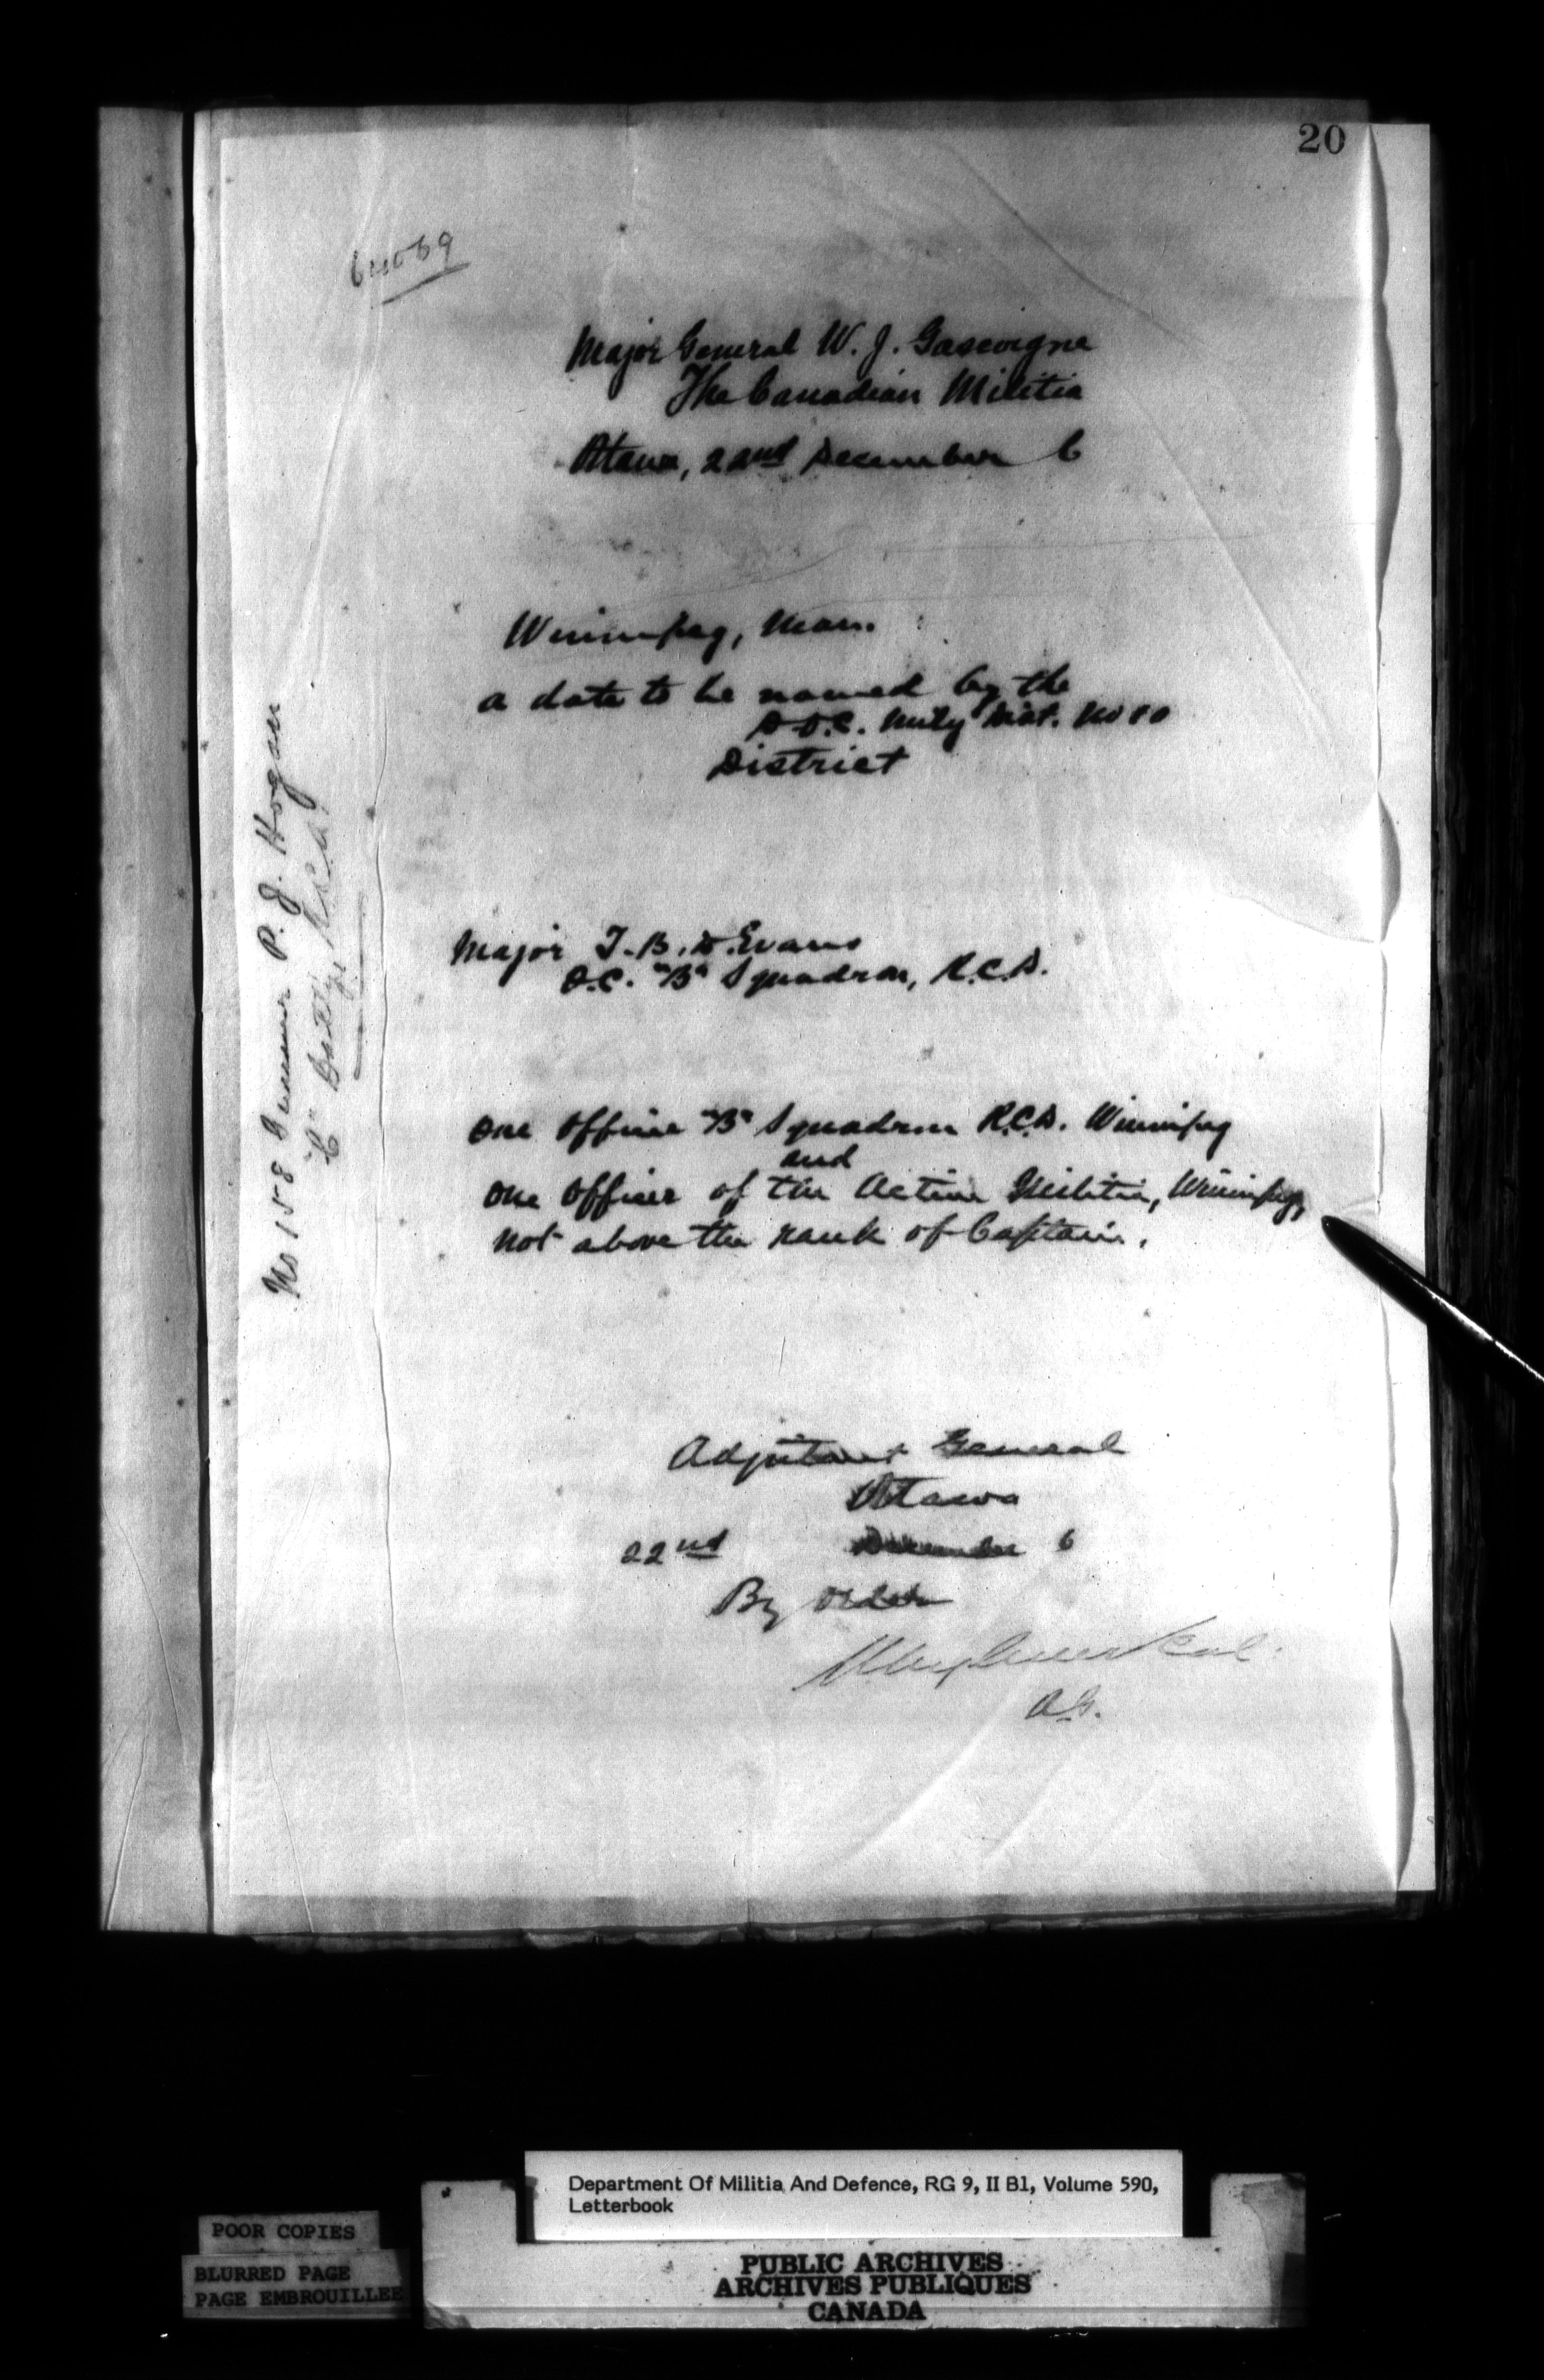 20
Major General W. J. Gascoigne
The Canadian Militia
Ottawa, 22nd December 6
Winnipeg, Man.
a date to be named by the
D.O.C. Mily Dist. No 10
District
No 158 Gunner P. J. Hogan
"C" Batty, R.C.A.
Major T. B. D. Evans
O.C. "B" Squadron, R.C.D.
One Officer "B" Squadron R.C.D. Winnipeg
and
One Officer of the Active Militia, Winnipeg,
not above the rank of Captain.
Adjutant General
Ottawa
22nd December 6
By Order
Col.
A.G.
Department Of Militia And Defence, RG 9, II B1, Volume 590,
Letterbook
POOR COPIES
BLURRED PAGE
PAGE EMBROUILLEE
PUBLIC ARCHIVES
ARCHIVES PUBLIQUES
CANADA